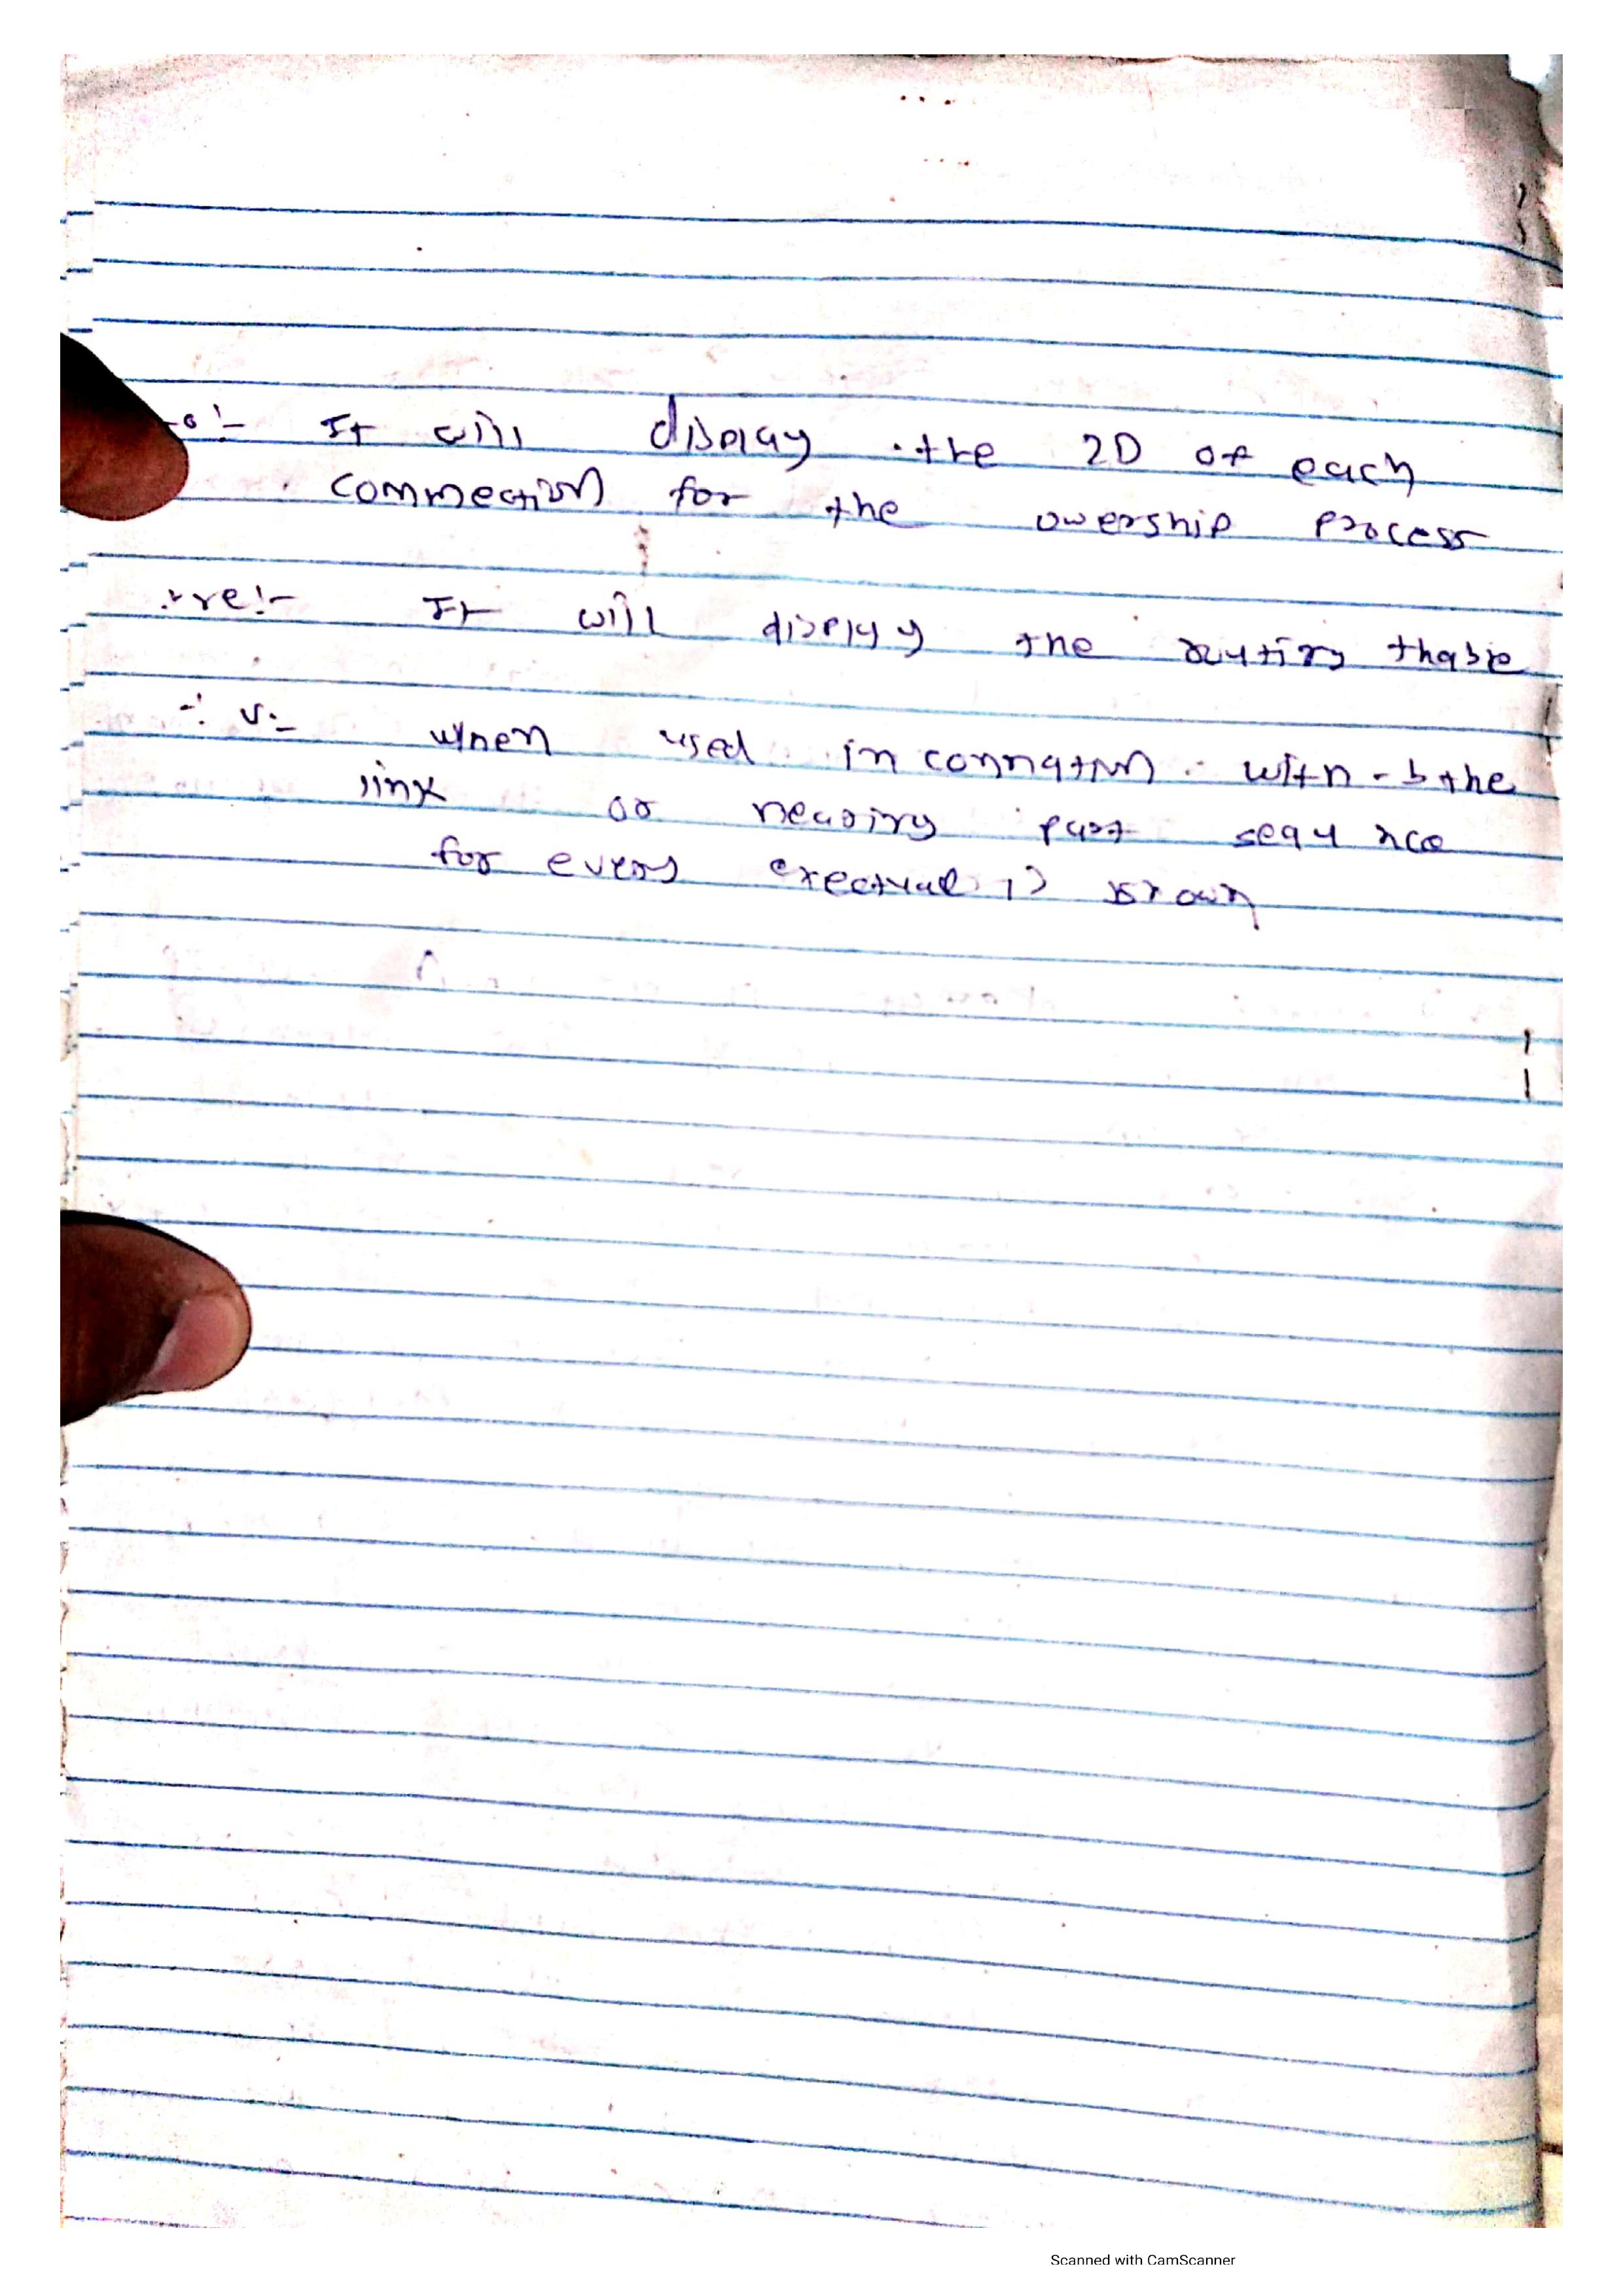 -o :- It will display the ID of each
connection for the owership process
:- It will display the routing thable
- v :- when used in connation with -b the
link or hearing part sequnce
for every exectuable is shown
Scanned with CamScanner